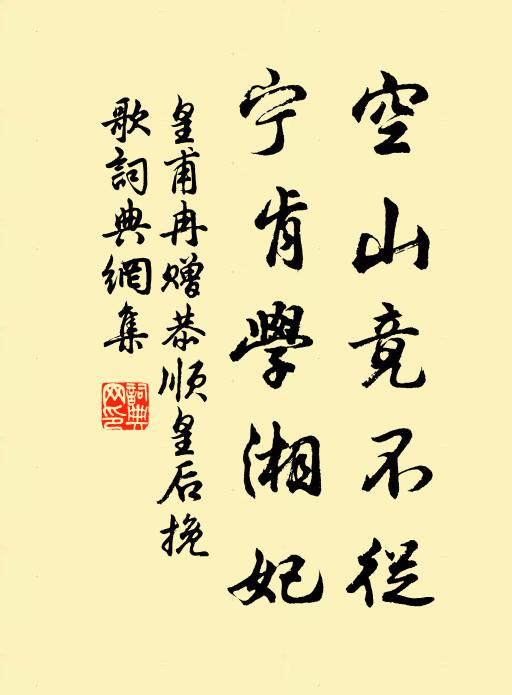 空山竟不從
宁肯學湘妃
皇甫冉赠恭顺皇后挽
歌詞典網集
詞典网印